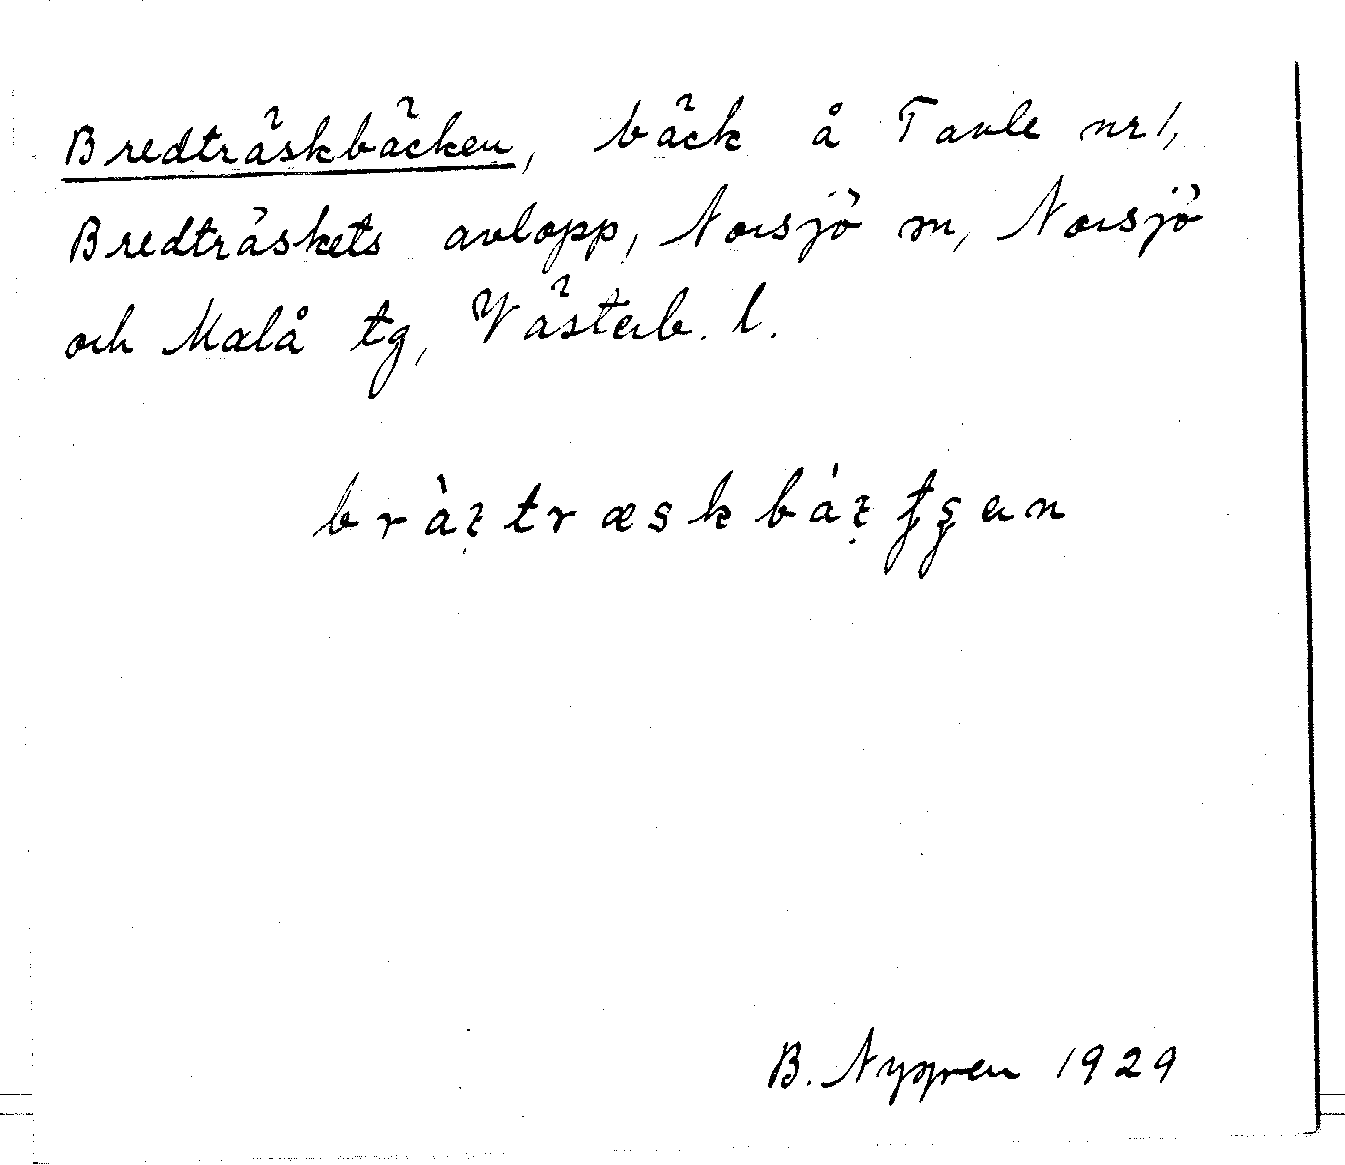 Bredträskbäcken, bäck å Tavle nr 1,
Bredträskets avlopp, Norsjö sn, Norsjö
och Malå tg, Västerb. l.
B. Nygren 1929